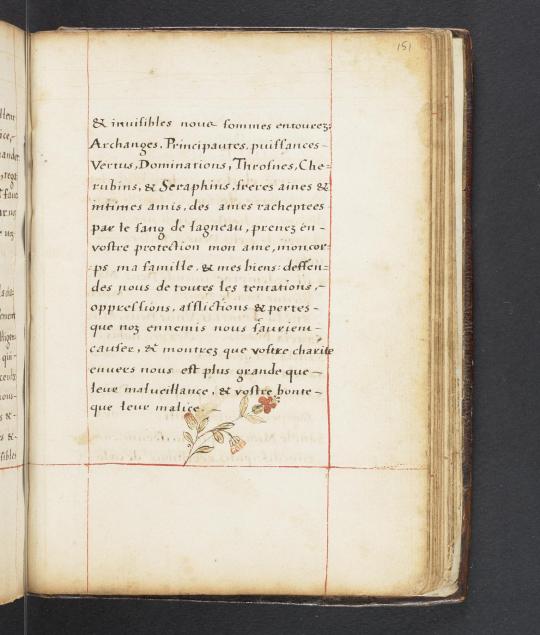 151
& inuisibles nous sommes entourez:
Archanges, Principautes, puissances-
Vertus, Dominations, Throsnes, Che=
rubins, & Seraphins, freres aines &
intimes amis, des ames racheptees
par le sang de lagneau, prenez en-
vostre protection mon ame, moncor-
ps, ma famille, & mes biens: deffen-
des nous de toutes les tentations,-
oppressions, afflictions & pertes-
que noz ennemis nous sauriem-
causer, & montrez que vostre charite
enuers nous est plus grande que-
leur malueillance, & vostre bonte-
que leur malice.